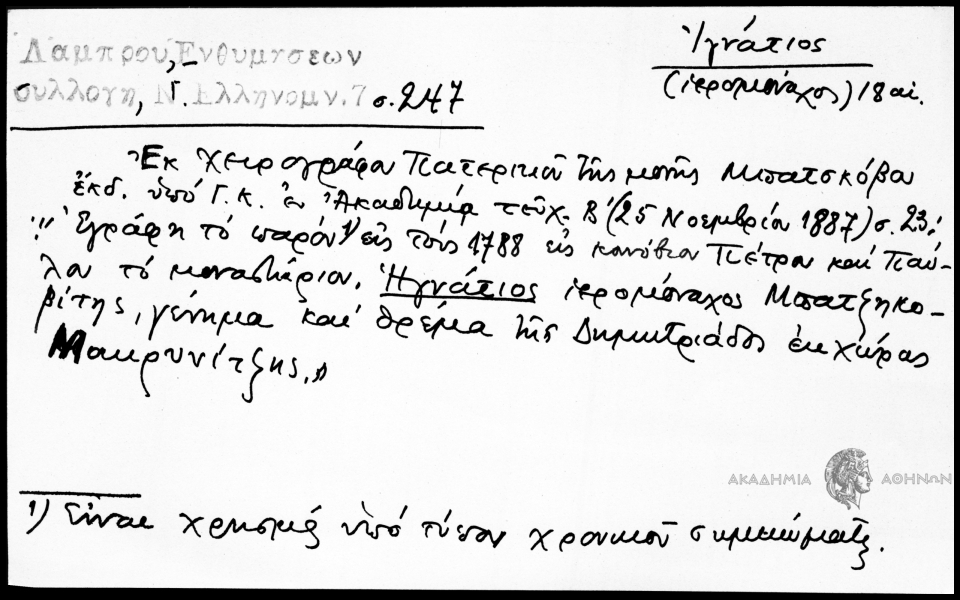 Λάμπρου, Ἐνθυμήσεων
συλλογή, Ν. Ἑλληνομν. 7 σ. 247
Ἰγνάτιος
(ἱερομόναχος) 18 αἰ.
Ἐκ χειρογράφου Πατερικοῦ τῆς μονῆς Μπατσκόβου
ἐκδ. ὑπό Γ. Κ. ἐν Ἀκαδημίᾳ τεῦχ. Β' (25 Νοεμβρίου 1887) σ. 23:
"Ἐγράφη τό παρόν 1) εἰς τούς 1788 εἰς κοινόβιον Πέτρου καί Παύ-
λου τό μοναστήριον. Ἠγνάτιος ἱερομόναχος Μπατζηκο-
βίτης, γένημα καί θρέμα τῆς Δημητριάδος ἐκ χώρας
Μακρυνίτζης."
ΑΚΑΔΗΜΙΑ ΑΘΗΝΩΝ
1) Εἶναι χρησμός ὑπό τύπον χρονικοῦ σημειώματος.